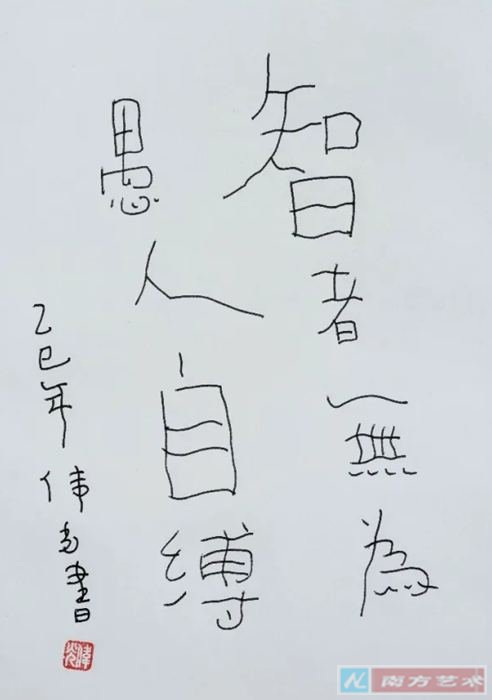 智者無為
愚人自縛
乙巳年 伟光書
南方艺术